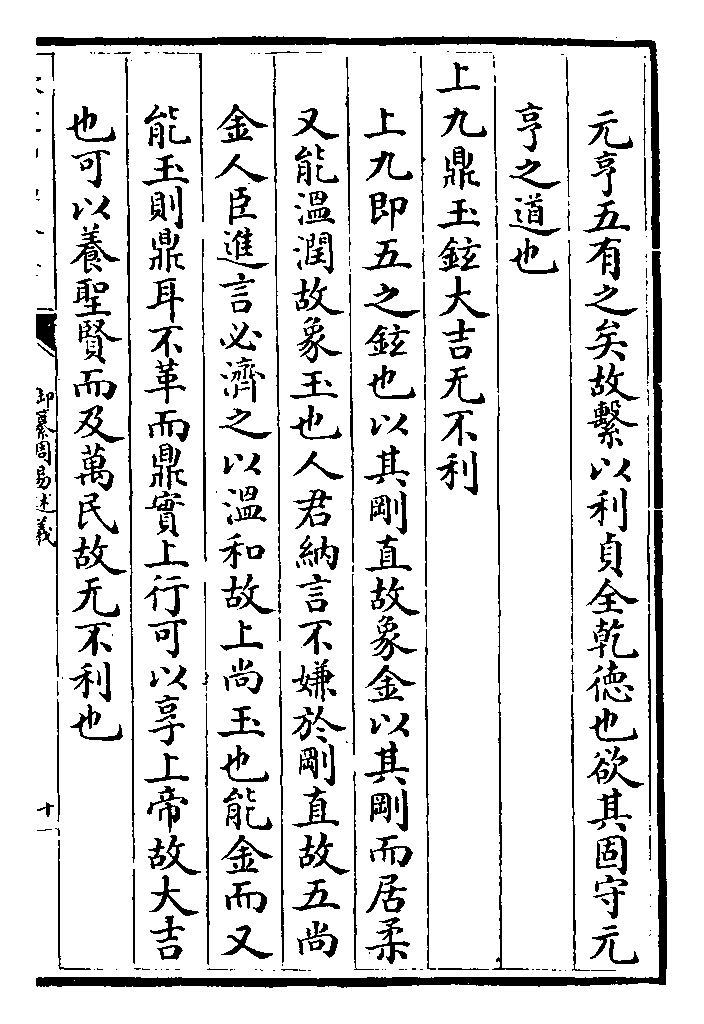 元亨五有之矣故繫以利貞全乾德也欲其固守元
亨之道也
上九鼎玉鉉大吉无不利
上九即五之鉉也以其剛直故象金以其剛而居柔
又能溫潤故象玉也人君納言不嫌於剛直故五尚
金人臣進言必濟之以溫和故上尚玉也能金而又
能玉則鼎耳不革而鼎實上行可以享上帝故大吉
也可以養聖賢而及萬民故无不利也
御纂周易述義
十一